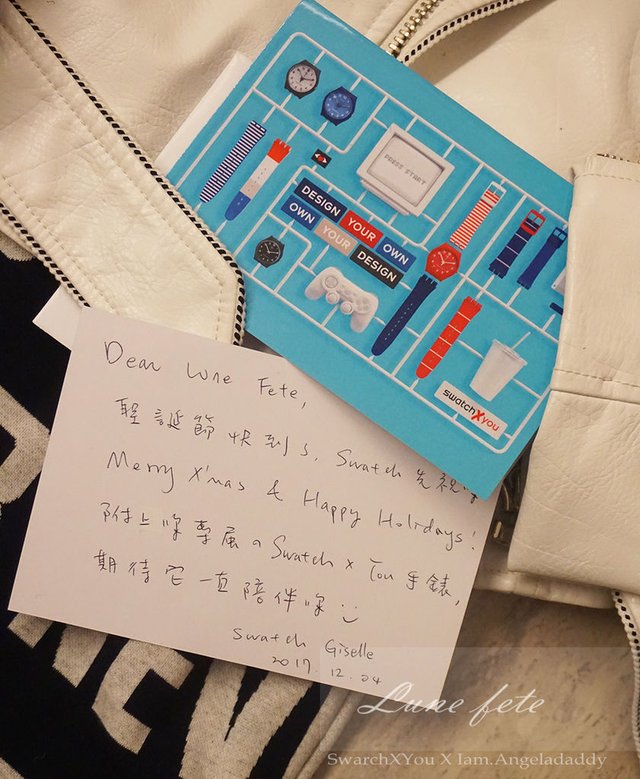 PRESS START
DESIGN YOUR OWN
OWN YOUR DESIGN
swatchXyou
Dear Lune Fete,
聖誕節快到了, Swatch 先祝
Merry X'mas & Happy Holidays!
附上妳專屬の Swatch x You 手錶,
期待它一直陪伴妳
Swatch Giselle
2017.12.04
Lune fete
SwarchXYou X Iam.Angeladaddy